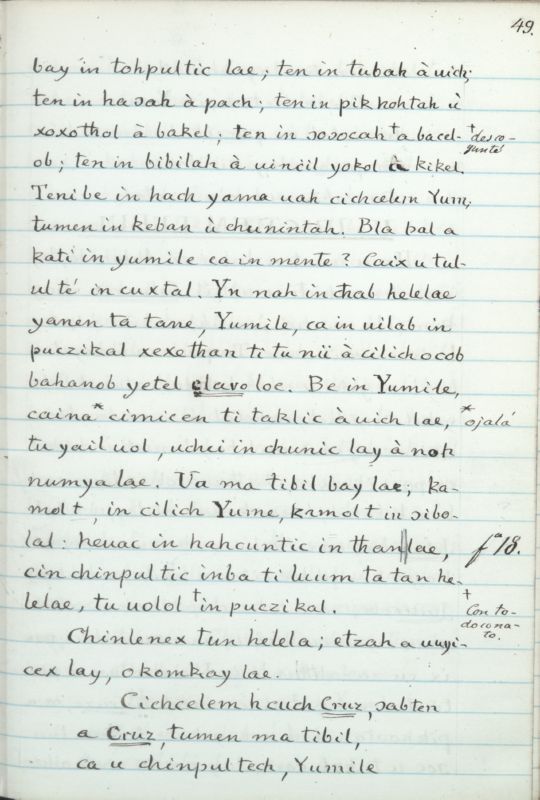 49.
bay in tohpultic lae; ten in tubah à uich;
ten in haɔah à pach; ten in pikkohtah ù
xoxothol à bakel; ten in ɔoɔocah + a bacel-
+ desco-
yunté
ob; ten in bibilah à uincil yokol à kikel.
Tenibe in hach yama uah cichcelem Yum,
tumen in keban ù chunintah. Bla bal a
kati in yumile ca in mente? Caix u tul-
ul té in cuxtal. Yn nah in chab helelae
yanen ta tane, Yumile, ca in uilab in
puczikal xexethan ti tu nii à cilich ocob
bahanob yetel clavo loe. Be in Yumile,
caina * cimicen ti taklic à uich lae,
* ojalá
tu yail uol, uchci in chunic lay à noh
numya lae. Ua ma tibil bay lae; ka-
molt, in cilich Yume, kamolt in ɔibo-
lal: heuac in hahcuntic in than lae,
fª 18.
cin chinpultic inba ti luum ta tan he-
lelae, tu uolol + in puczikal.
+
Con to-
do cona-
to.
Chinlenex tun helela; etzah a uuyi-
cex lay, okomkay lae.
Cichcelem h cuch Cruz, ɔabten
a Cruz, tumen ma tibil,
ca u chinpultech, Yumile